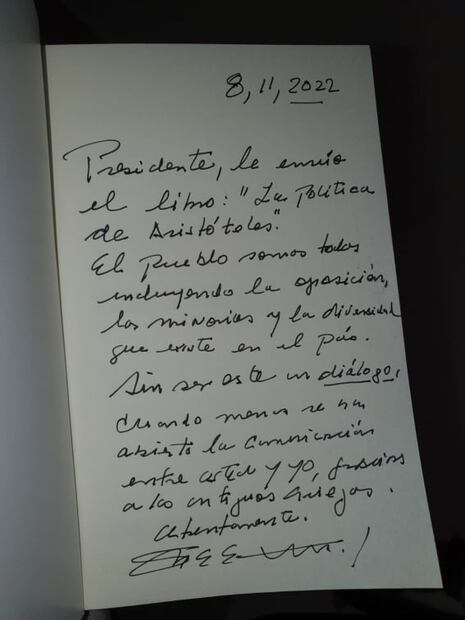 8, 11, 2022
Presidente, le envío
el libro: "La Política
de Aristóteles."
El Pueblo somos todos
incluyendo la oposición,
las minorías y la diversidad
que existe en el país.
Sin ser este un diálogo,
cuando menos se ha
abierto la comunicación
entre usted y yo, gracias
a los antiguos Griegos.
Atentamente.